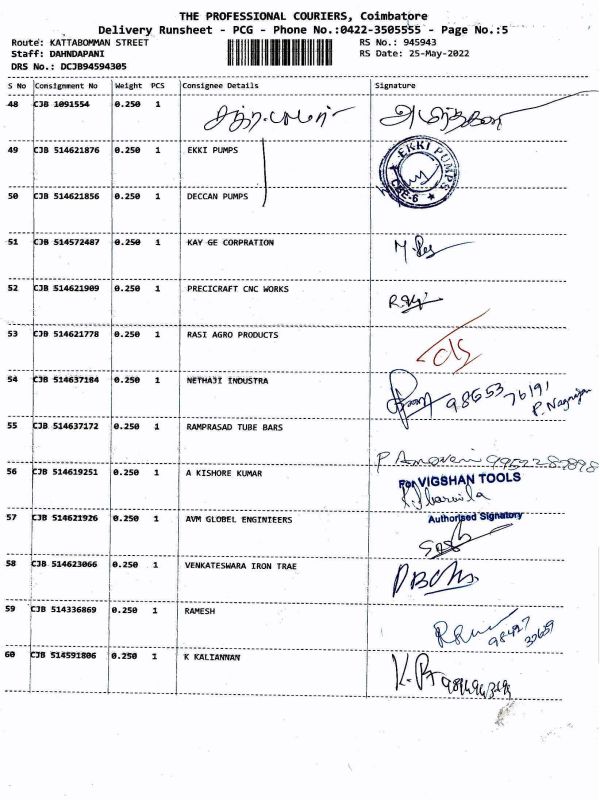 THE PROFESSIONAL COURIERS, Coimbatore
Delivery Runsheet - PCG - Phone No.:0422-3505555 - Page No.:5
Route: KATTABOMMAN STREET RS No.: 945943
Staff: DAHNDAPANI RS Date: 25-May-2022
DRS No.: DCJB94594305
S No Consignment No Weight PCS Consignee Details Signature
48 CJB 1091554 0.250 1
49 CJB 514621876 0.250 1 EKKI PUMPS EKKI PUMPS CBE-6
50 CJB 514621856 0.250 1 DECCAN PUMPS
51 CJB 514572487 0.250 1 KAY GE CORPRATION
52 CJB 514621909 0.250 1 PRECICRAFT CNC WORKS
53 CJB 514621778 0.250 1 RASI AGRO PRODUCTS
54 CJB 514637184 0.250 1 NETHAJI INDUSTRA 98653 76191
P. Nagrajan
55 CJB 514637172 0.250 1 RAMPRASAD TUBE BARS
56 CJB 514619251 0.250 1 A KISHORE KUMAR For VIGSHAN TOOLS
57 CJB 514621926 0.250 1 AVM GLOBEL ENGINIEERS Authorised Signatory
58 CJB 514623066 0.250 1 VENKATESWARA IRON TRAE
59 CJB 514336869 0.250 1 RAMESH
60 CJB 514591806 0.250 1 K KALIANNAN